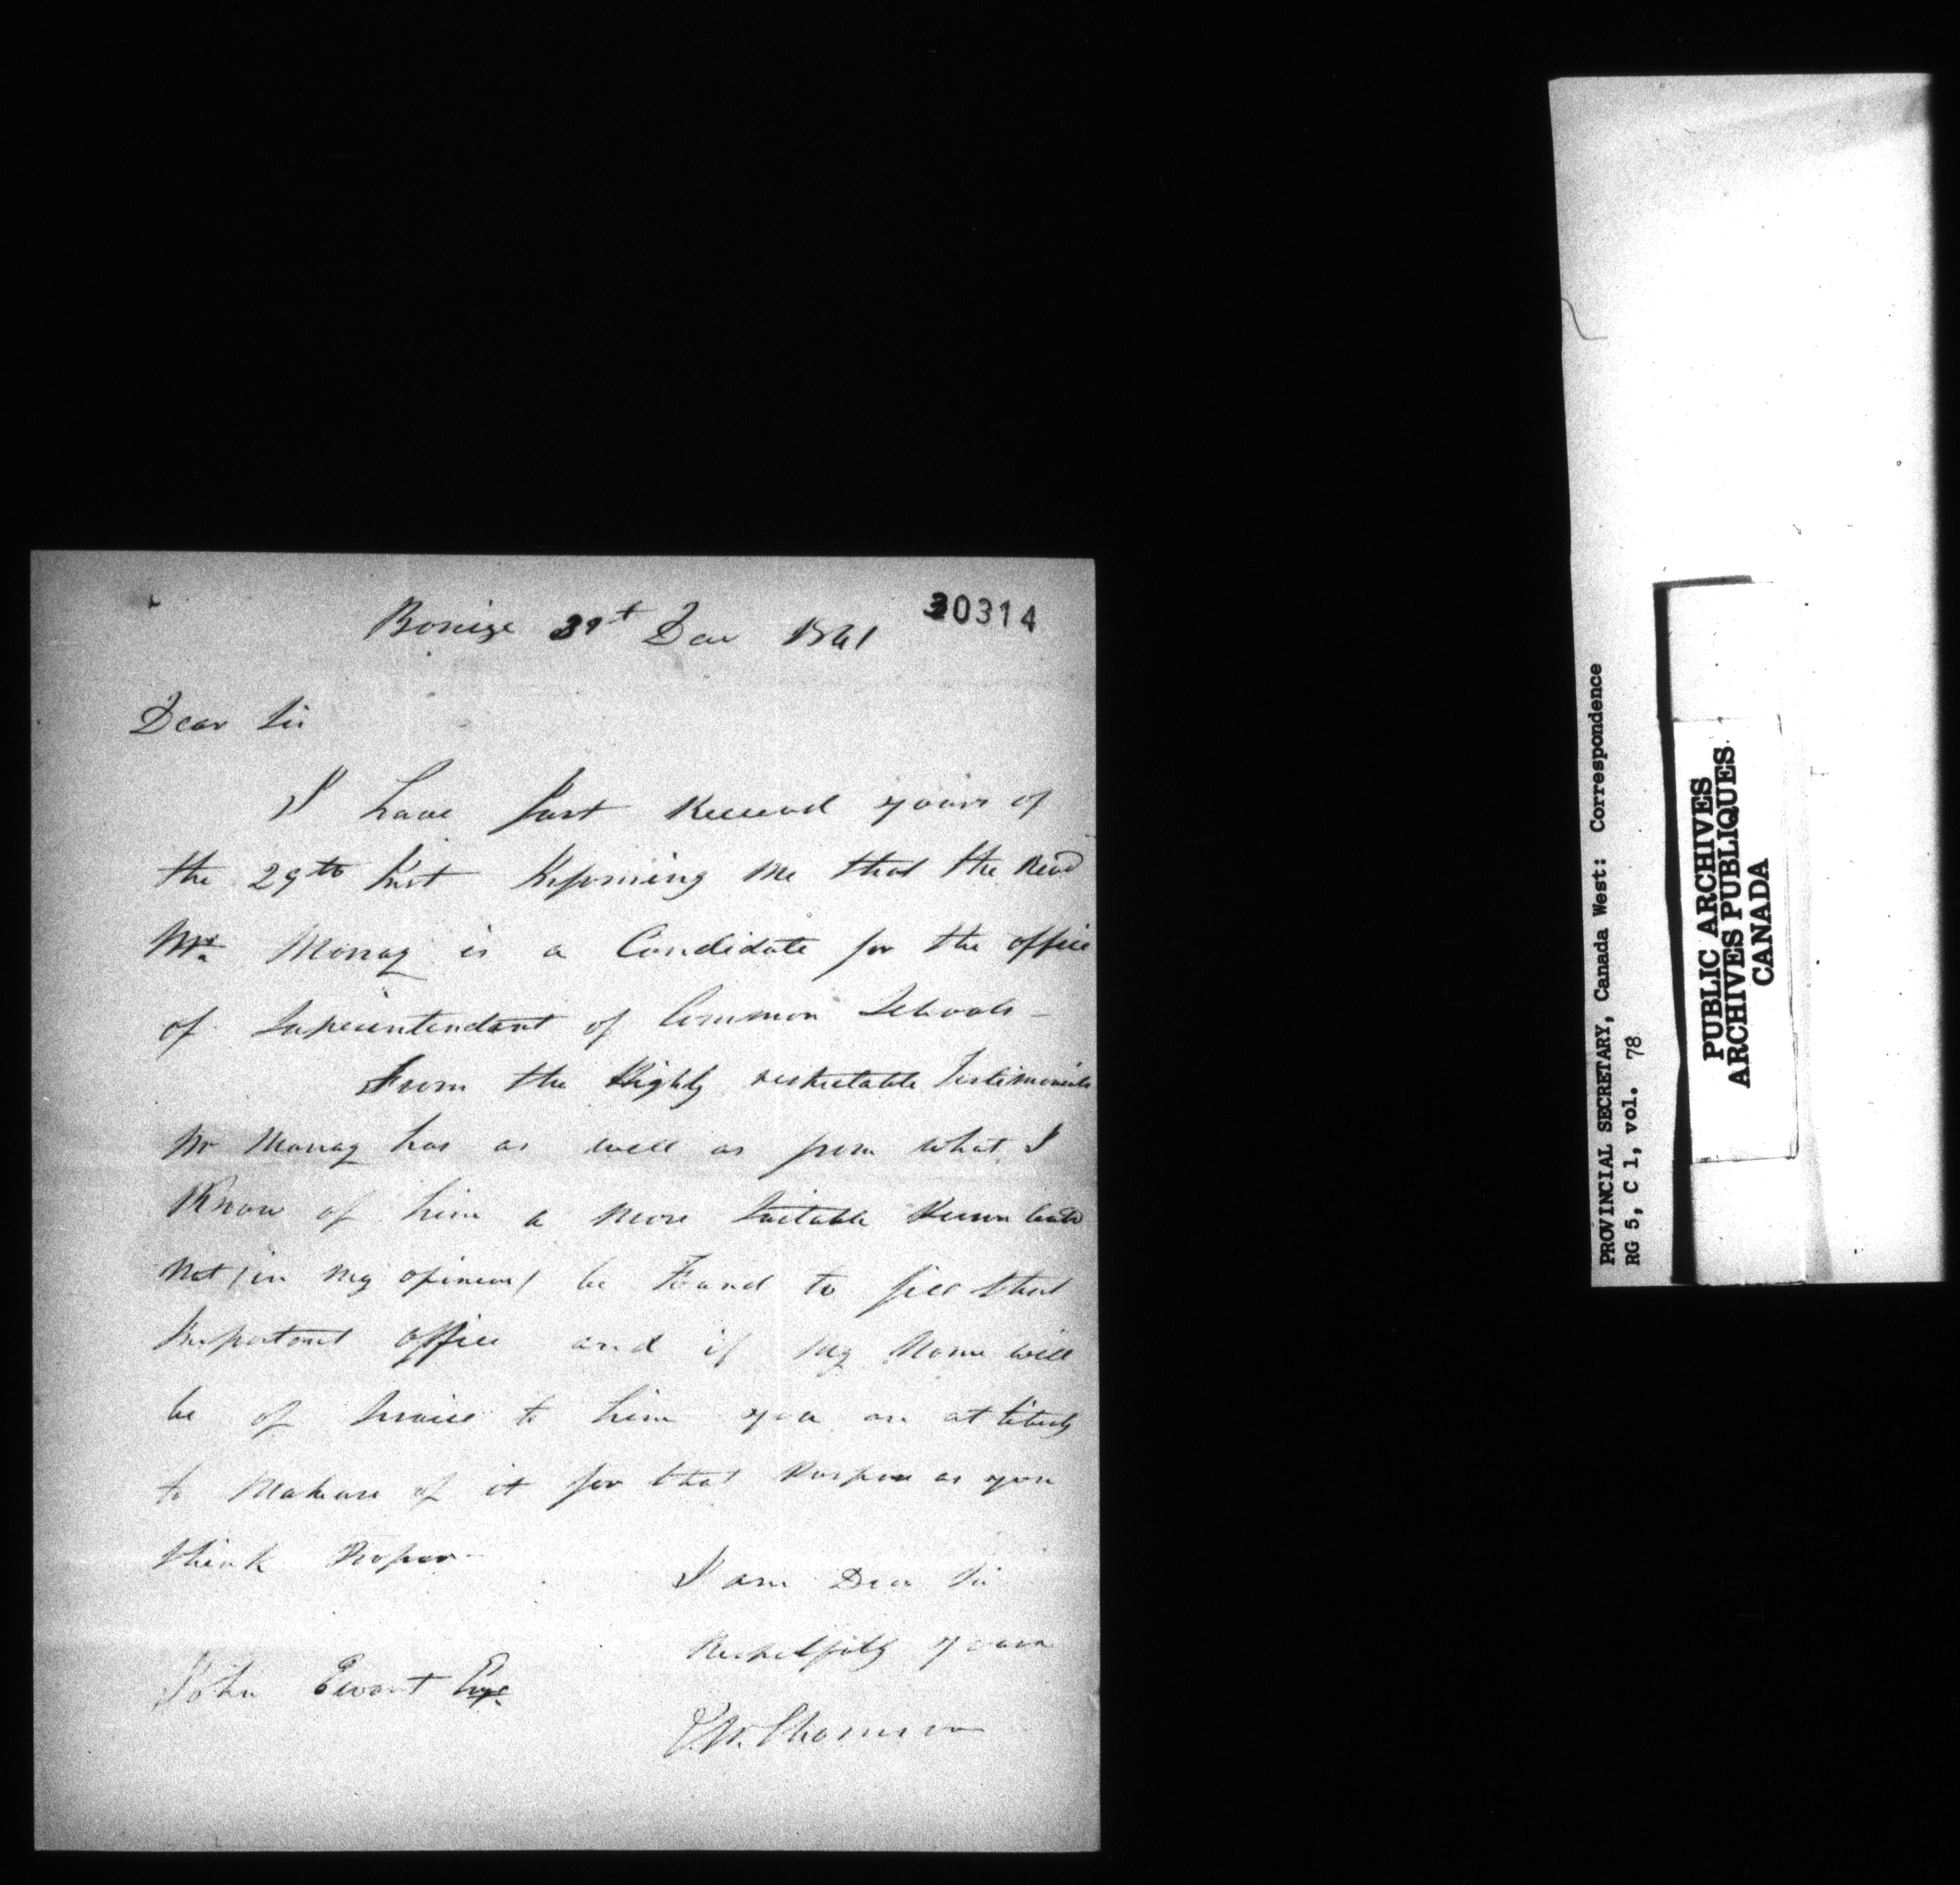 30314
31st Dec 1841
Dear Sir
I have Just Received yours of
the 29th Inst Informing Me that the Revd
Mr. Murray is a Candidate for the office
of Superintendant of Common Schools -
From the Highly respectable Testimonials
Mr Murray has as well as from what I
Know of him a More Suitable Person
Not (in My opinion) be Found to fill that
Important office and if My Name will
be of Service to him you are at liberty
to Make use of it for that Purpose as you
think Proper -
I am Dear Sir
Respectfully yours
John Ewart Esqr
E.W. Thomson
PROVINCIAL SECRETARY, Canada West: Correspondence
RG 5, C 1, vol. 78
PUBLIC ARCHIVES
ARCHIVES PUBLIQUES
CANADA